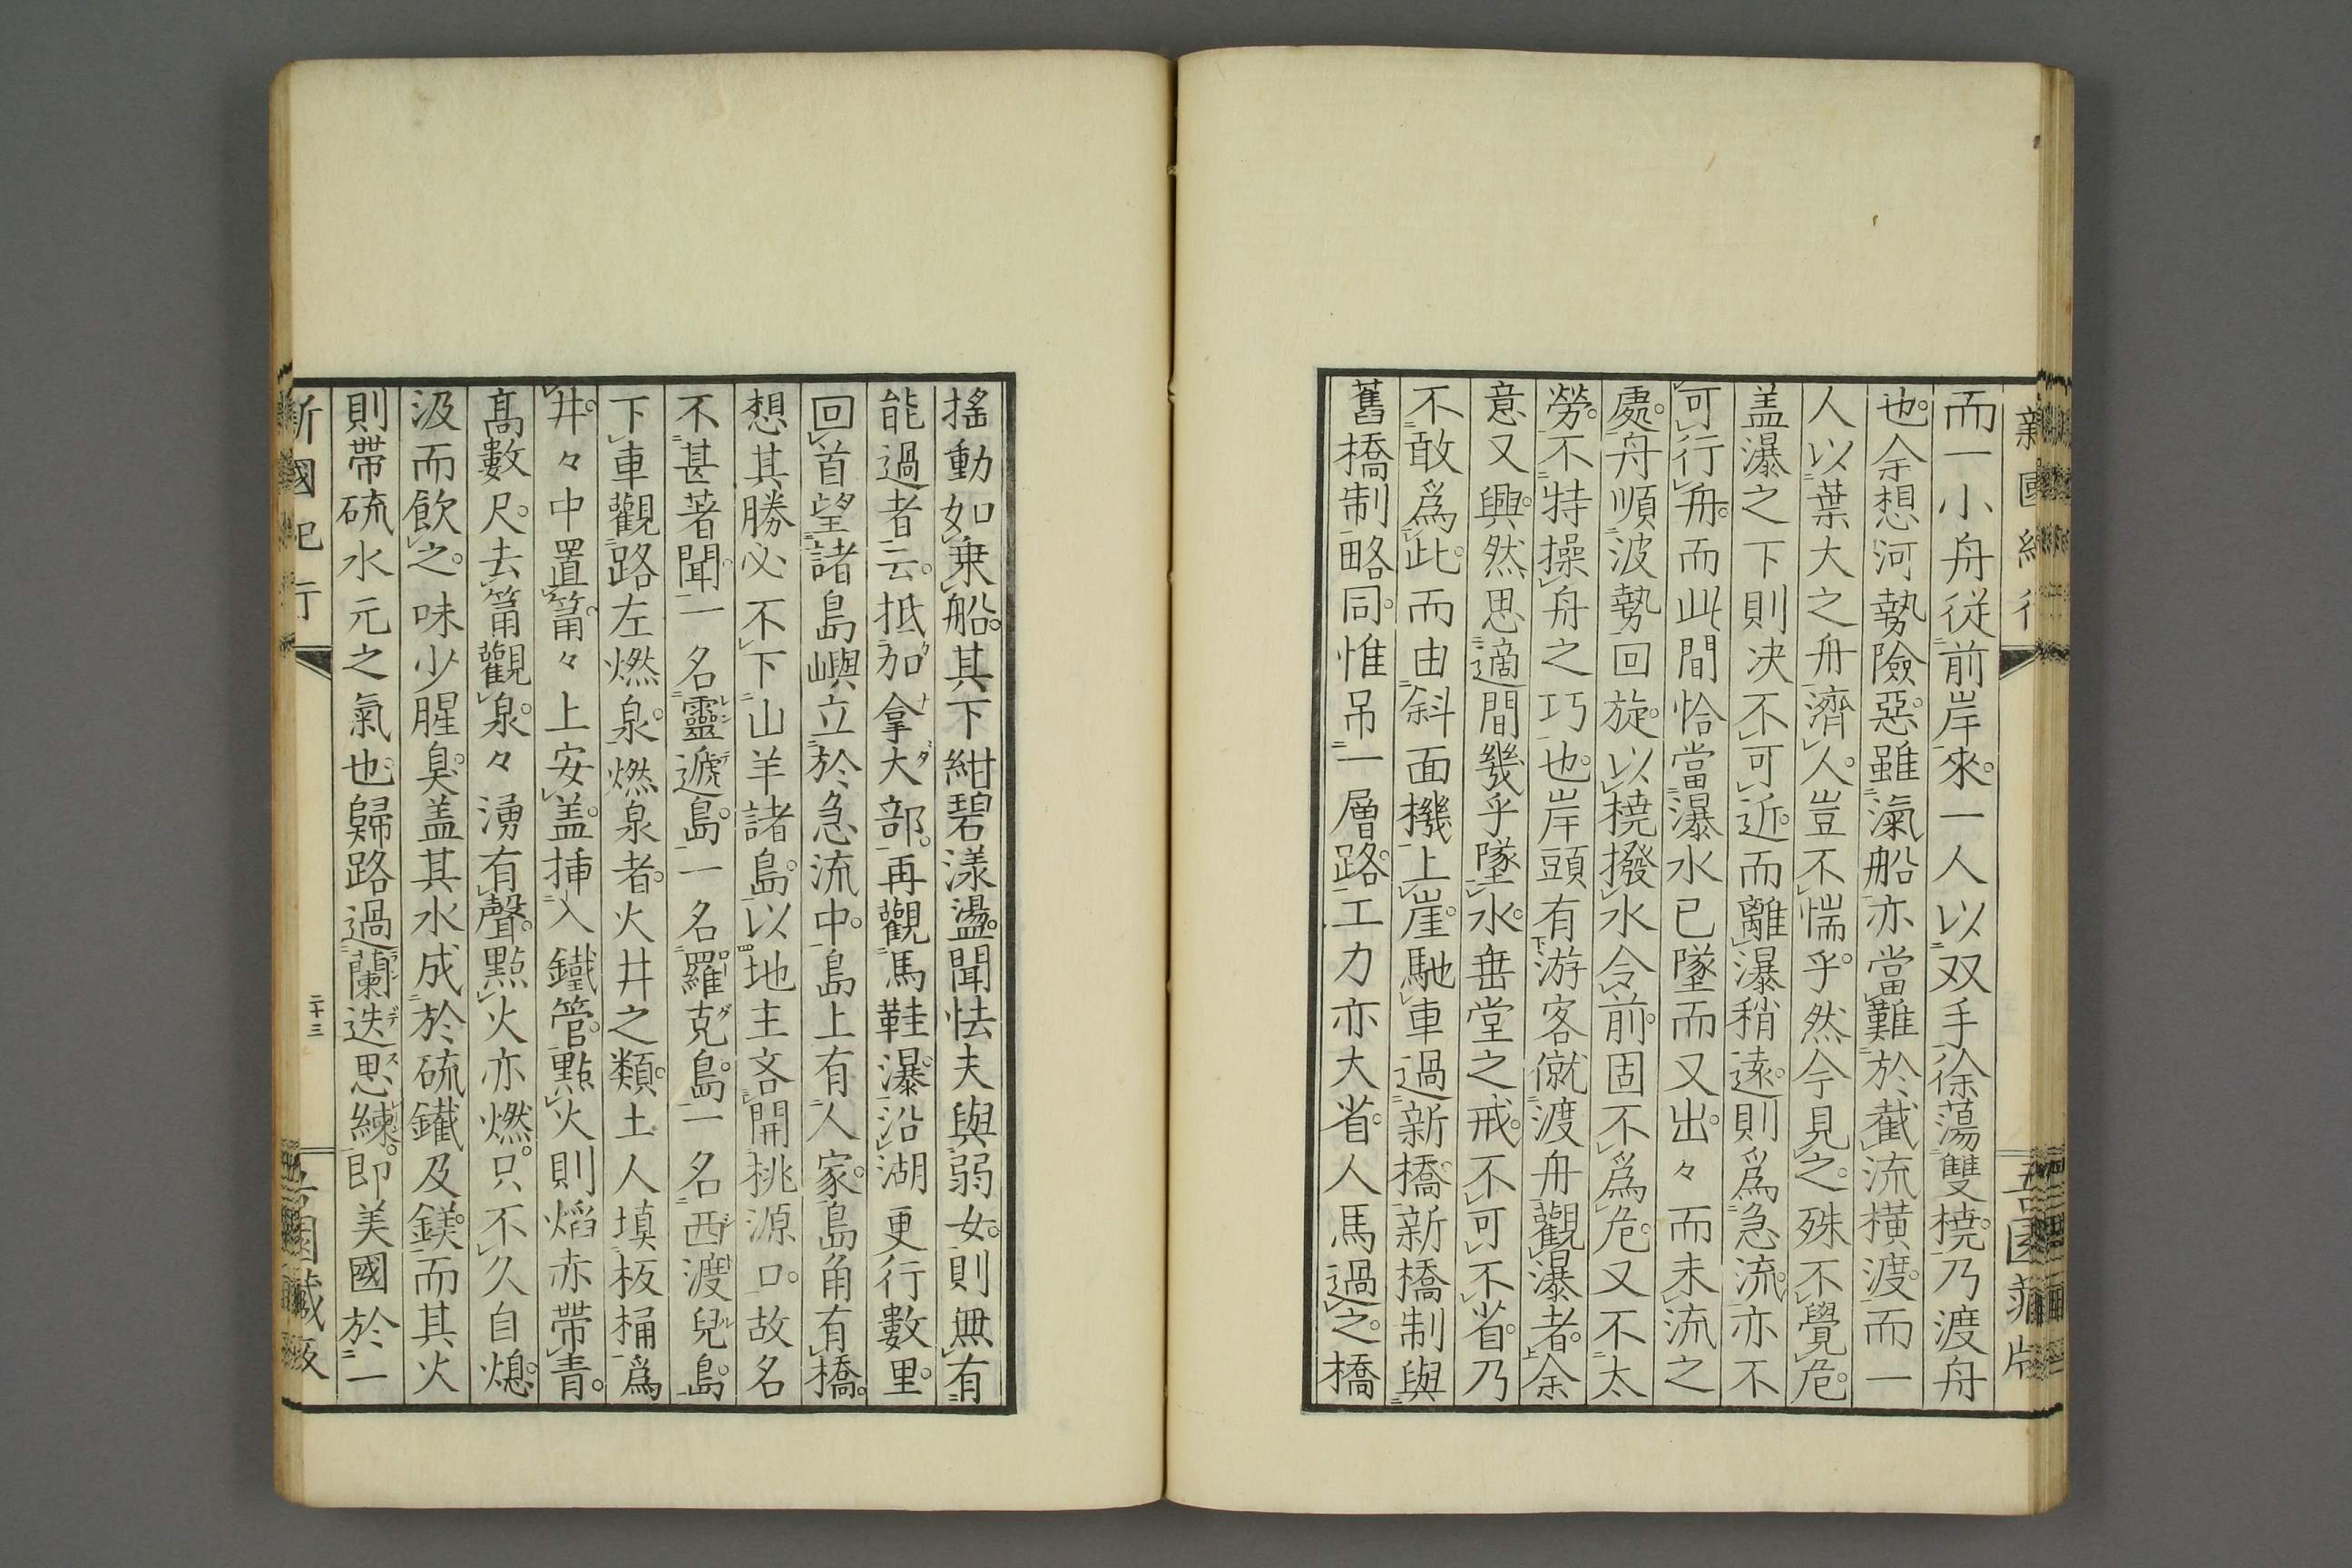 而一小舟従前岸來。一人以双手徐蕩雙橈。乃渡舟
也。余想河勢險惡。雖滊船亦當難於截流橫渡。而一
人以葉大之舟濟人。豈不惴乎。然今見之。殊不覺危。
盖瀑之下則决不可近。而離瀑稍遠。則爲急流。亦不
可行舟。而此間恰當瀑水已墜而又出々而未流之
處。舟順波勢回旋。以橈撥水令前。固不爲危。又不太
勞。不特操舟之巧也。岸頭有游客僦渡舟觀瀑者。余
意又興。然思適間幾乎墜水。垂堂之戒。不可不省。乃
不敢爲此。而由斜面機上崖。馳車過新橋。新橋制與
舊橋制略同。惟吊一層路。工力亦大省。人馬過之。橋
搖動如乗船。其下紺碧漾盪。聞怯夫與弱女。則無有
能過者云。抵加拿大部。再觀馬鞋瀑。沿湖更行數里。
回首望諸島嶼立於急流中。島上有人家。島角有橋。
想其勝必不下山羊諸島。以地主吝開桃源口。故名
不甚著聞。一名靈遞島。一名羅克島。一名西渡兒島。
下車觀路左燃泉。燃泉者。火井之類。土人塡板桶爲
井。々中置筩。々上安盖。挿入鐵管。點火則熖赤帶青。
髙數尺。去筩觀泉。々湧有聲。點火亦燃。只不久自熄。
汲而飲之。味少腥臭。盖其水成於硫鐵及鎂。而其火
則帶硫水元之氣也。歸路過蘭迭思練。即美國於一
新國紀行
二十三